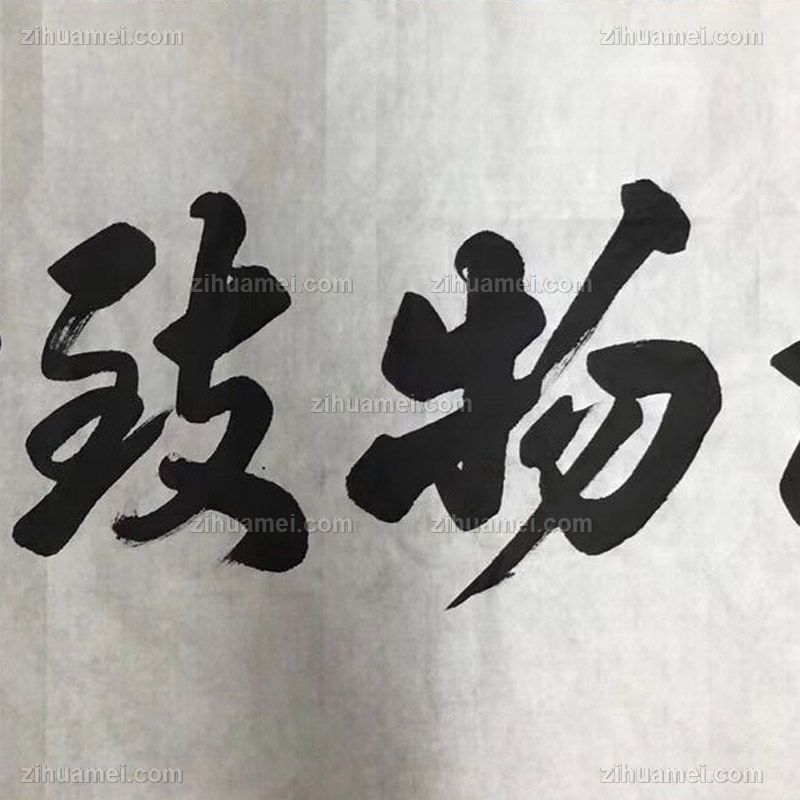 物致
zihuamei.com
zihuamei.com
zihuamei.com
zihuamei.com
zihuamei.com
zihuamei.com
zihuamei.com
zihuamei.com
zihuamei.com